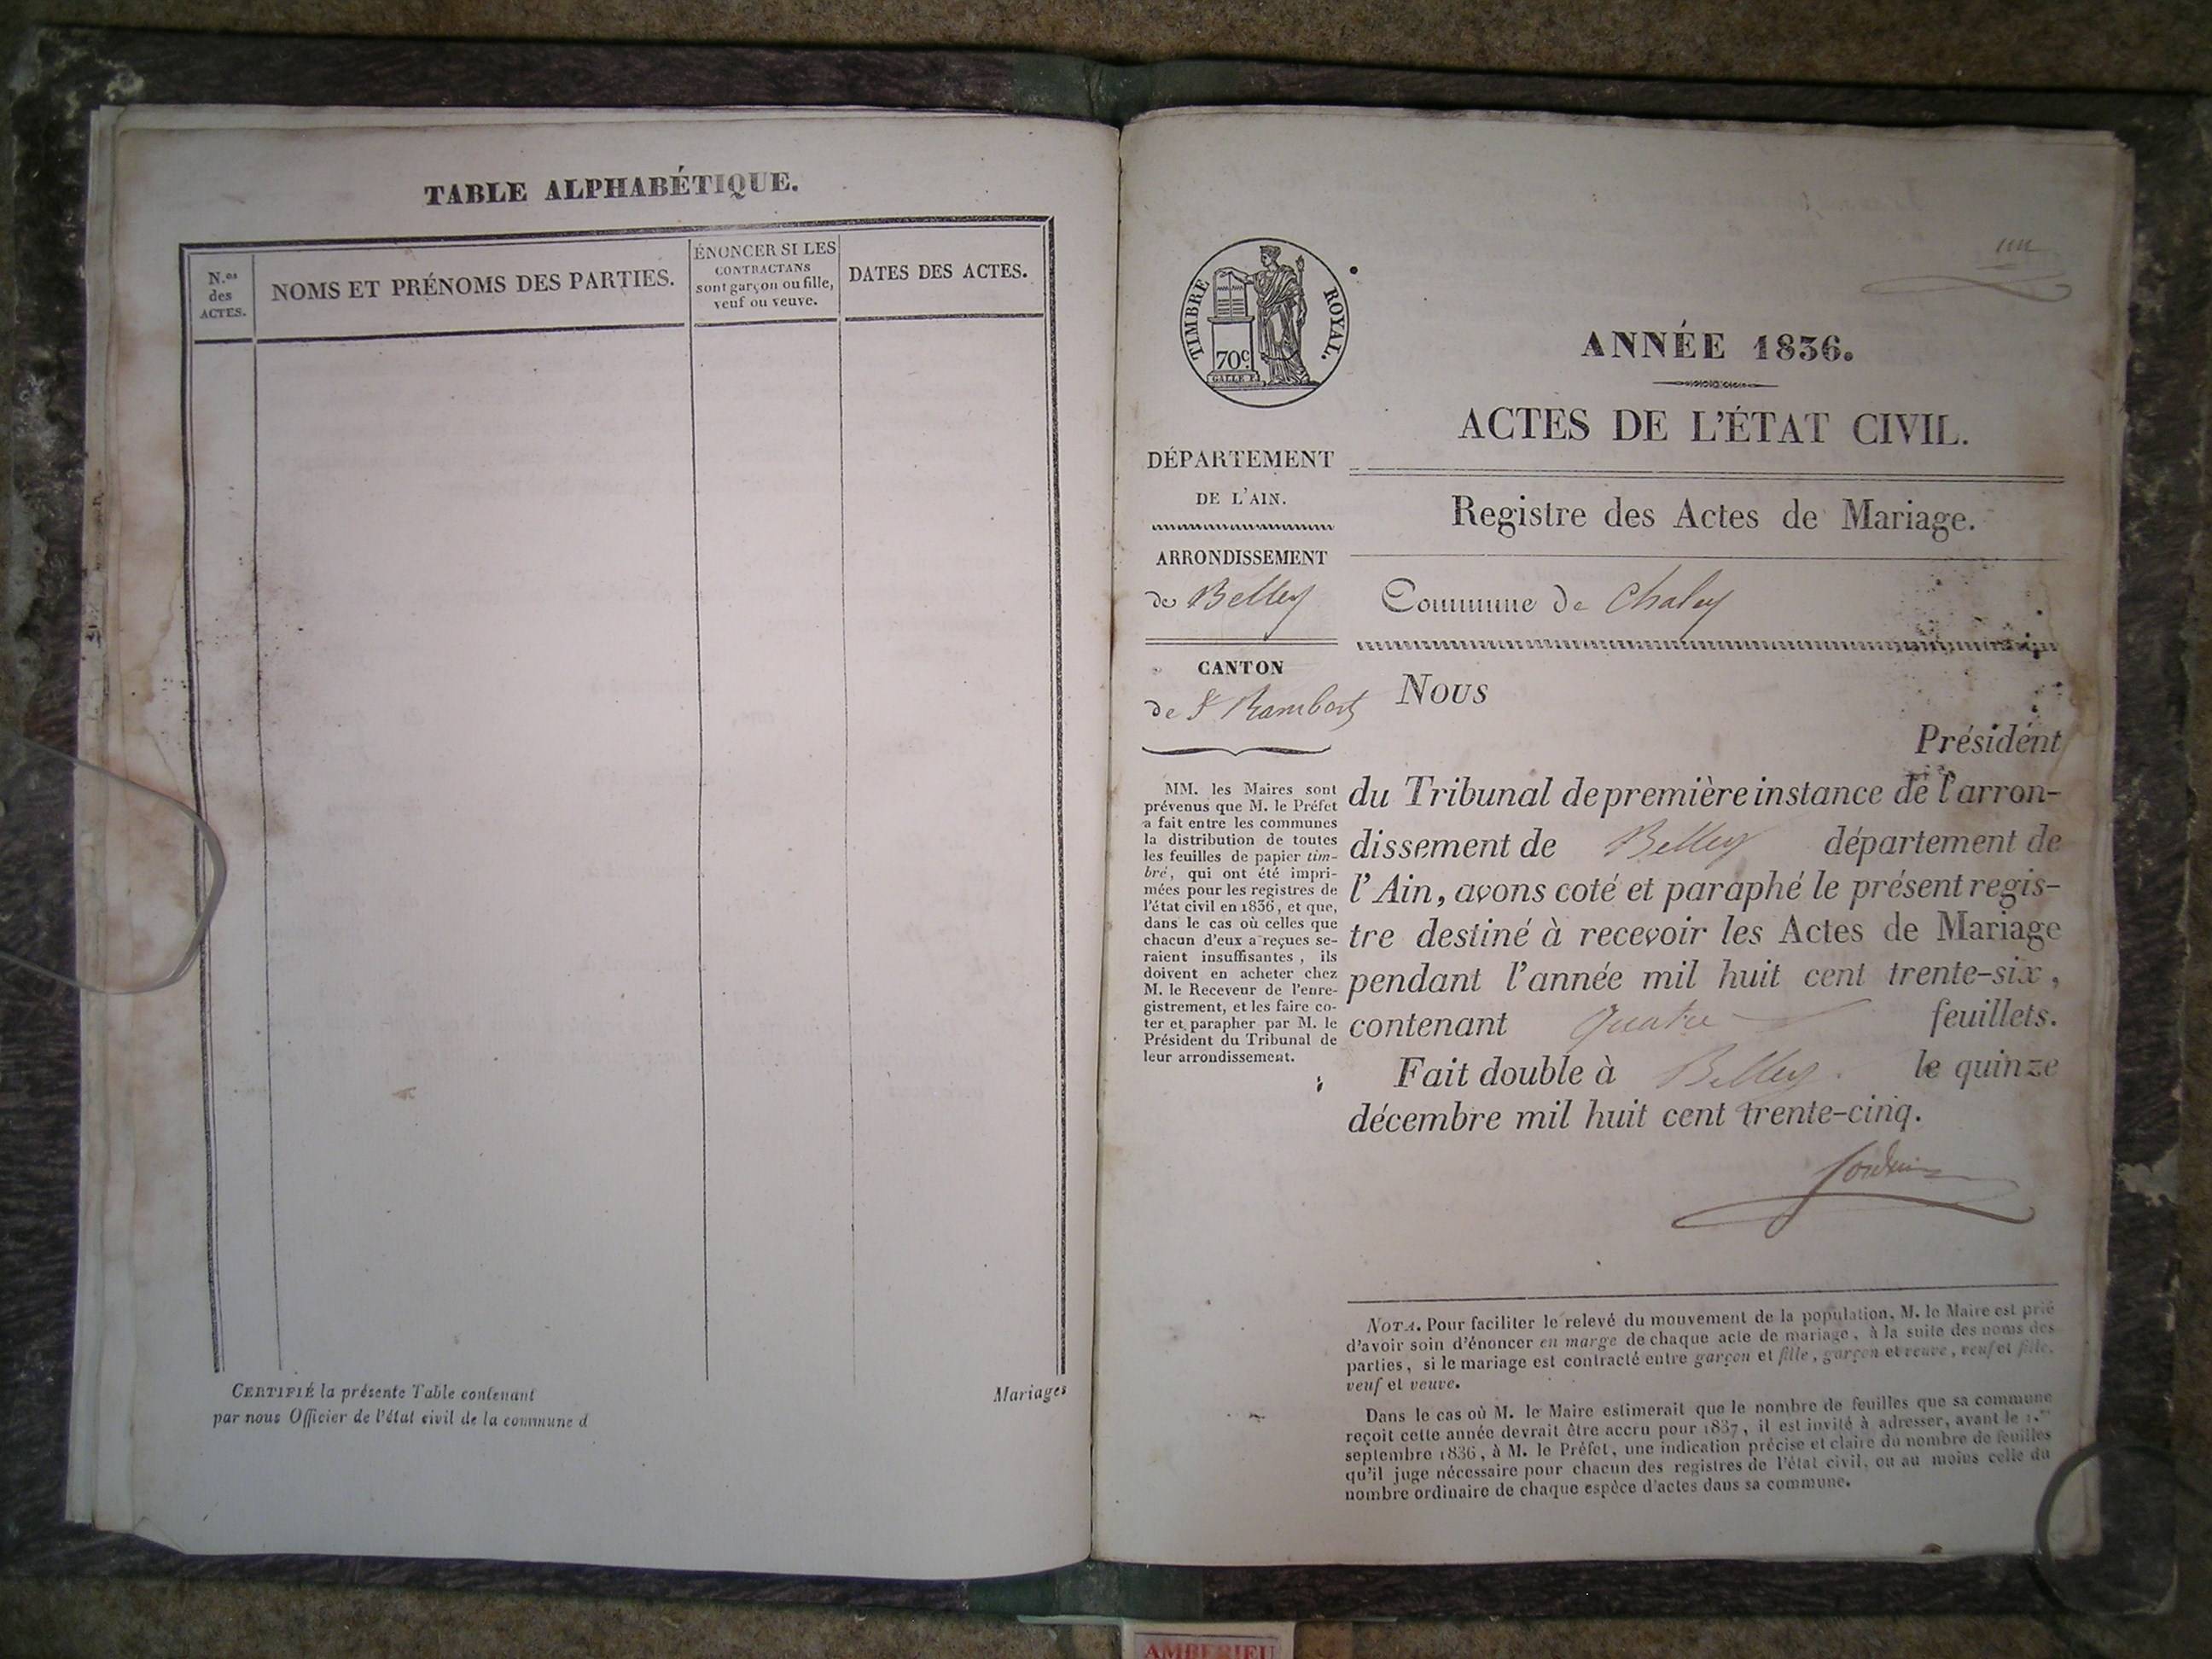 TABLE ALPHABÉTIQUE.
N.os
des
ACTES.
NOMS ET PRÉNOMS DES PARTIES.
ÉNONCER SI LES
CONTRACTANS
sont garçon ou fille,
veuf ou veuve.
DATES DES ACTES.
CERTIFIÉ la présente Table contenant
Mariages
par nous Officier de l'état civil de la commune d
TIMBRE ROYAL.
70c.
GALLE F.
ANNÉE 1836.
ACTES DE L'ÉTAT CIVIL.
Registre des Actes de Mariage.
DÉPARTEMENT
DE L'AIN.
ARRONDISSEMENT
de Belley
CANTON
de St Rambert
MM. les Maires sont
prévenus que M. le Préfet
a fait entre les communes
la distribution de toutes
les feuilles de papier tim-
bré, qui ont été impri-
mées pour les registres de
l'état civil en 1836, et que,
dans le cas où celles que
chacun d'eux a reçues se-
raient insuffisantes, ils
doivent en acheter chez
M. le Receveur de l'enre-
gistrement, et les faire co-
ter et parapher par M. le
Président du Tribunal de
leur arrondissement.
Commune de Chaley
Nous
Président
du Tribunal de première instance de l'arron-
dissement de Belley département de
l'Ain, avons coté et paraphé le présent regis-
tre destiné à recevoir les Actes de Mariage
pendant l'année mil huit cent trente-six,
contenant quatre feuillets.
Fait double à Belley. le quinze
décembre mil huit cent trente-cinq.
NOTA. Pour faciliter le relevé du mouvement de la population, M. le Maire est prié
d'avoir soin d'énoncer en marge de chaque acte de mariage, à la suite des noms des
parties, si le mariage est contracté entre garçon et fille, garçon et veuve, veuf et fille,
veuf et veuve.
Dans le cas où M. le Maire estimerait que le nombre de feuilles que sa commune
reçoit cette année devrait être accru pour 1837, il est invité à adresser, avant le 1.er
septembre 1836, à M. le Préfet, une indication précise et claire du nombre de feuilles
qu'il juge nécessaire pour chacun des registres de l'état civil, ou au moins celle du
nombre ordinaire de chaque espèce d'actes dans sa commune.
AMBERIEU